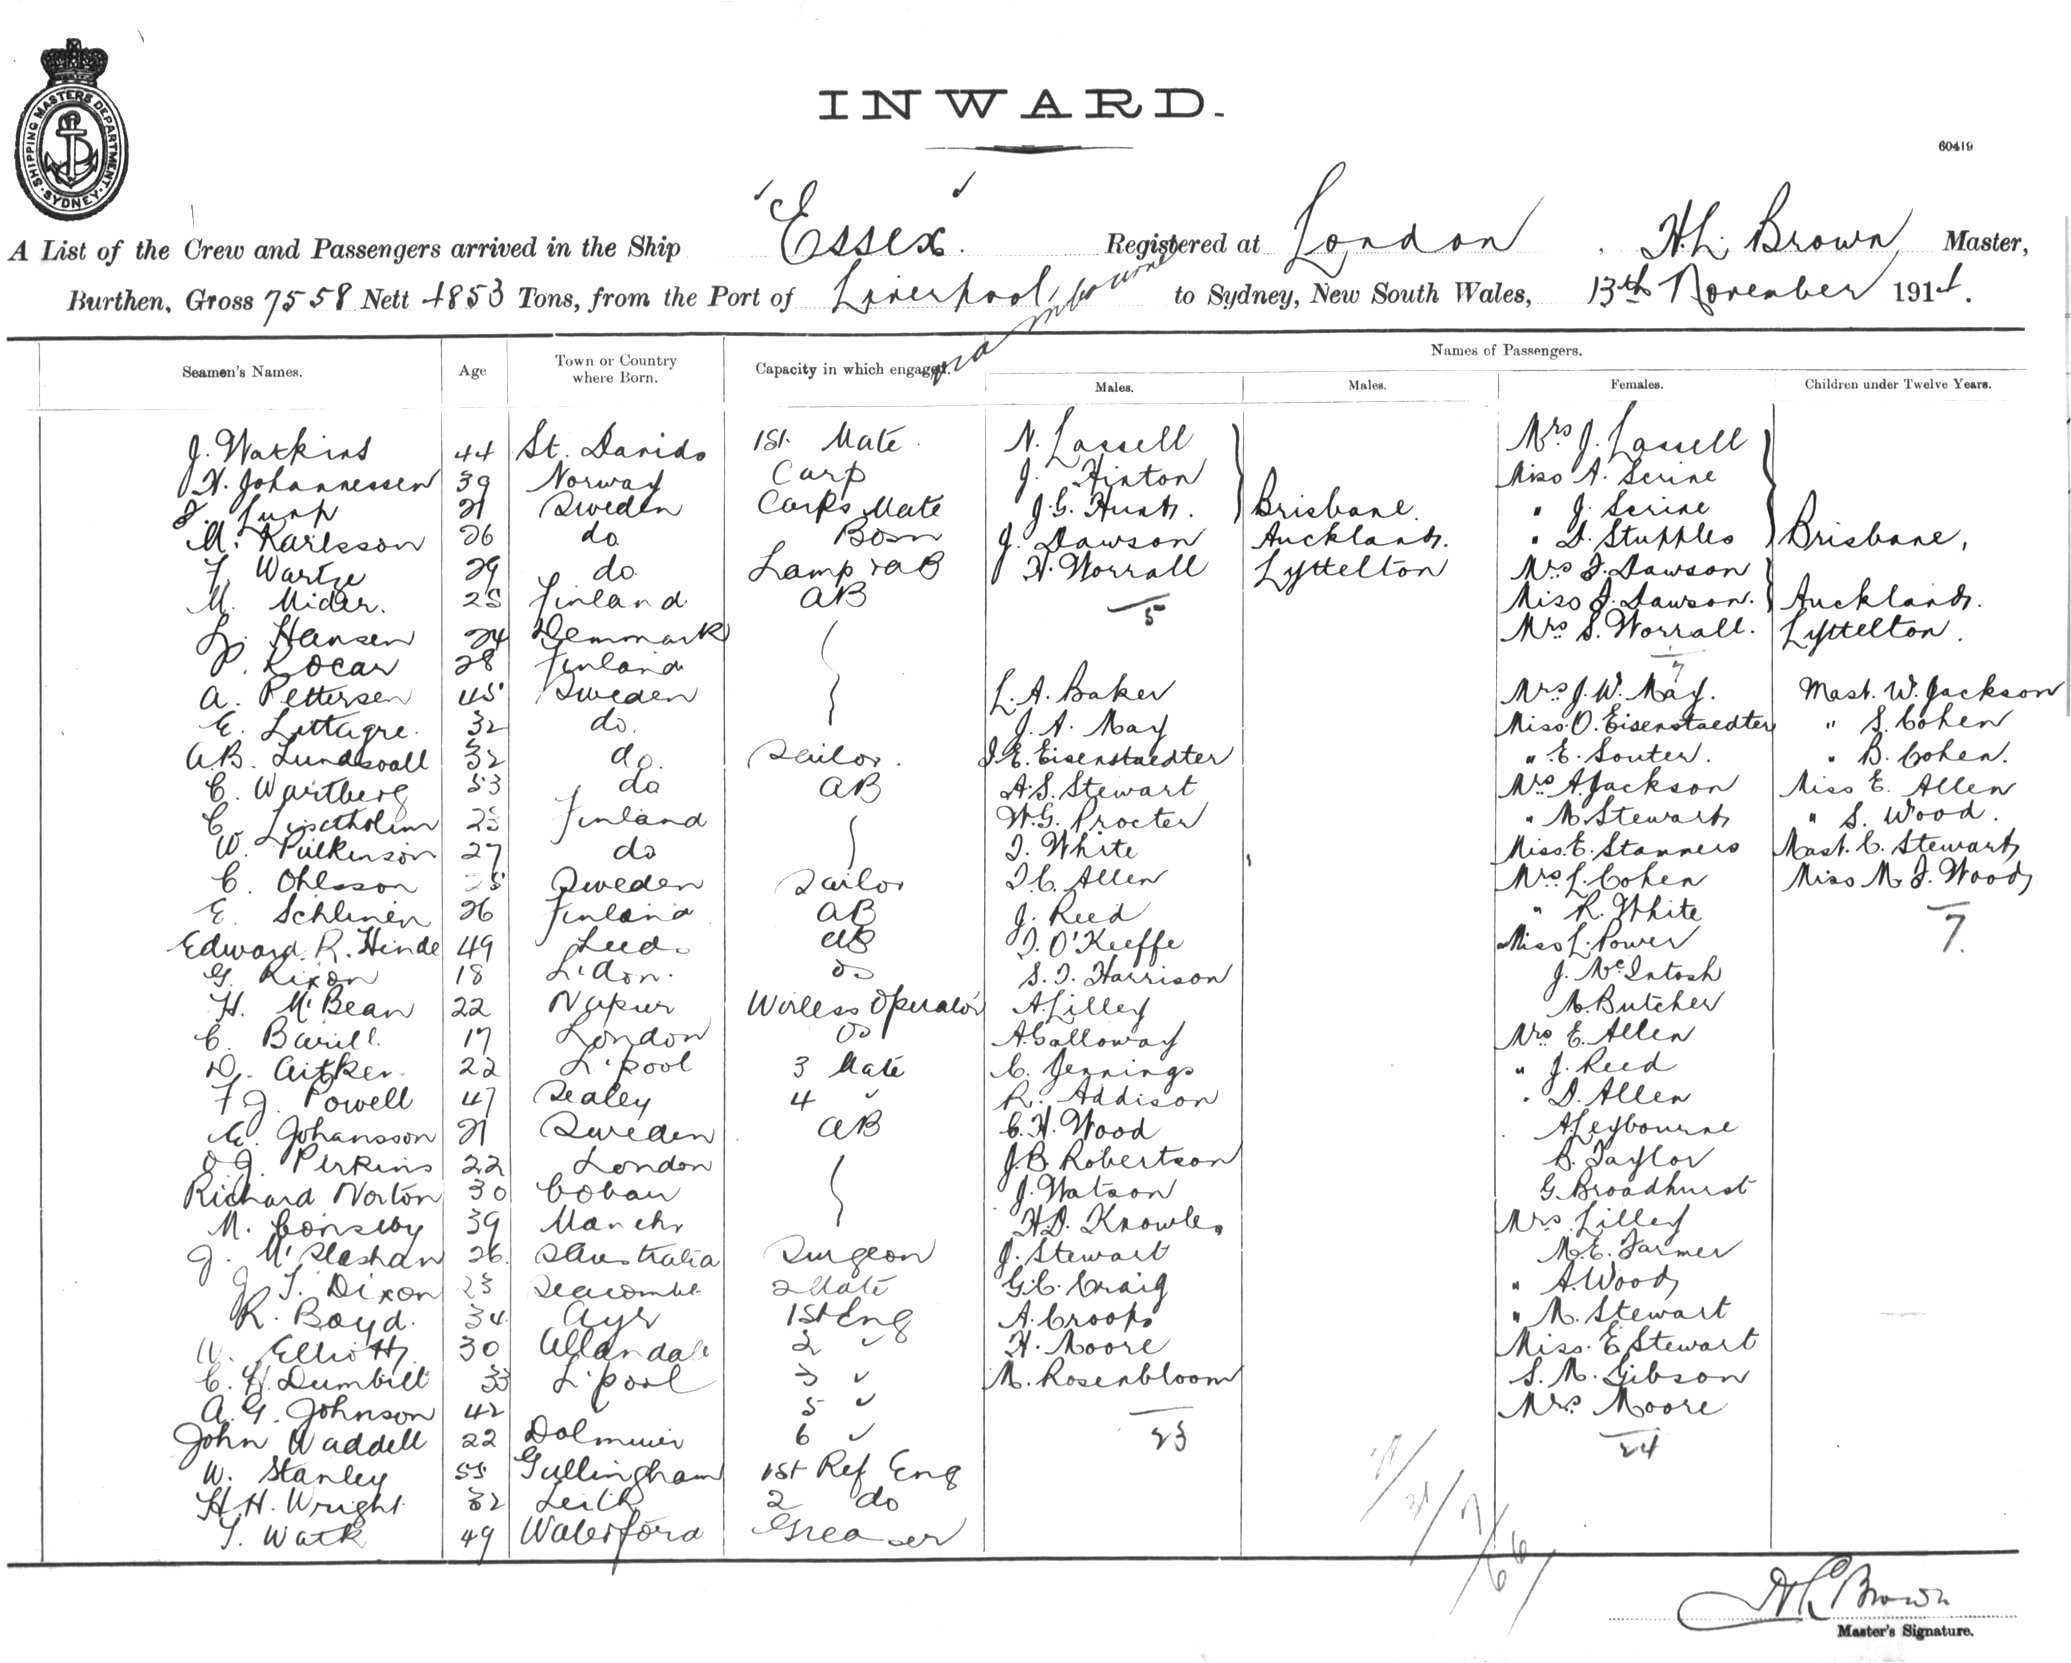 SHIPPING MASTERS DEPARTMENT · SYDNEY ·
INWARD.
60419
A List of the Crew and Passengers arrived in the Ship "Essex". Registered at London, H.L. Brown Master,
Burthen, Gross 7558 Nett 4853 Tons, from the Port of Liverpool, via Melbourne to Sydney, New South Wales, 13th November 1914.
Names of Passengers.
Seamen's Names. Age Town or Country where Born. Capacity in which engaged. Males. Males. Females. Children under Twelve Years.
J. Watkins 44 St. Davids 1st. Mate N. Lassell Mrs J. Lassell
H. Johannessen 39 Norway Carp J. Hinton Miss A. Scrine
21 Sweden Carps Mate J.G. Hunt. Brisbane. " J. Scrine
M. Karlsson 26 do Bosn J. Dawson Auckland. " D. Stupples Brisbane,
29 do Lamp & AB H. Worrall Lyttelton Mrs J. Dawson
M. Mider. 25 Finland AB 5 Miss J. Dawson. Auckland.
L. Hansen 24 Denmark Mrs S. Worrall. Lyttelton.
P. Kocar 28 Finland 7
A. Pettersen 45 Sweden L.A. Baker Mrs J.W. May. Mast. W. Jackson
E. 32 do. J.A. May Miss O. Eisenstaedter " S. Cohen
A.B. Lundsvall 32 do. Sailor. J.E. Eisenstaedter " E. Souter. " B. Cohen.
C. Wartberg 53 do AB A.S. Stewart Mrs A Jackson Miss E. Allen
C. 23 Finland W.G. Procter " M. Stewart " S. Wood.
W. 27 do J. White Miss E. Stanners Mast. C. Stewart
C. Ohlsson Sweden Sailor J.C. Allen Mrs L. Cohen Miss M J. Wood
E. 26 Finland AB J. Reed " R. White 7
Edward R. Hinde 49 Leeds AB J. O'Keeffe Miss L. Power
G. Rixon 18 L'don. OS S.J. Harrison J. McIntosh
H. McBean 22 Napier Wireless Operator A. Lilley M. Butcher
C. 17 London OS A. Galloway Mrs E. Allen
D. Aitken 22 L'pool 3 Mate C. Jennings " J. Reed
F J. Powell 47 4 " R. Addison " D. Allen
E. Johansson 21 Sweden AB C.H. Wood A Leybourne
J. Perkins 22 London J.B. Robertson B. Taylor
Richard Norton 30 J. Watson G. Broadhurst
M. 39 Manchr H.D. Knowles Mrs. Lilley
J. 26. S Australia Surgeon J. Stewart M.E. Farmer
J. T. Dixon 23 Seacombe 2 Mate G.C. Craig " A. Wood
R. Boyd. 34 Ayr 1st Eng A. Crooks " M. Stewart
W. Elliott 30 Allandale 2 " H. Moore Miss. E Stewart
C. H. Dumbill 33 L'pool 3 " M. Rosenbloom S. M. Gibson
A. G. Johnson 42 5 " Mrs Moore
John Waddell 22 6 " 23 24
W. Stanley 55 Gullingham 1st Ref Eng
H. H. Wright 32 Leith 2 do
T. Watk 49 Waterford Greaser
31/7/66
H L Brown
Master's Signature.